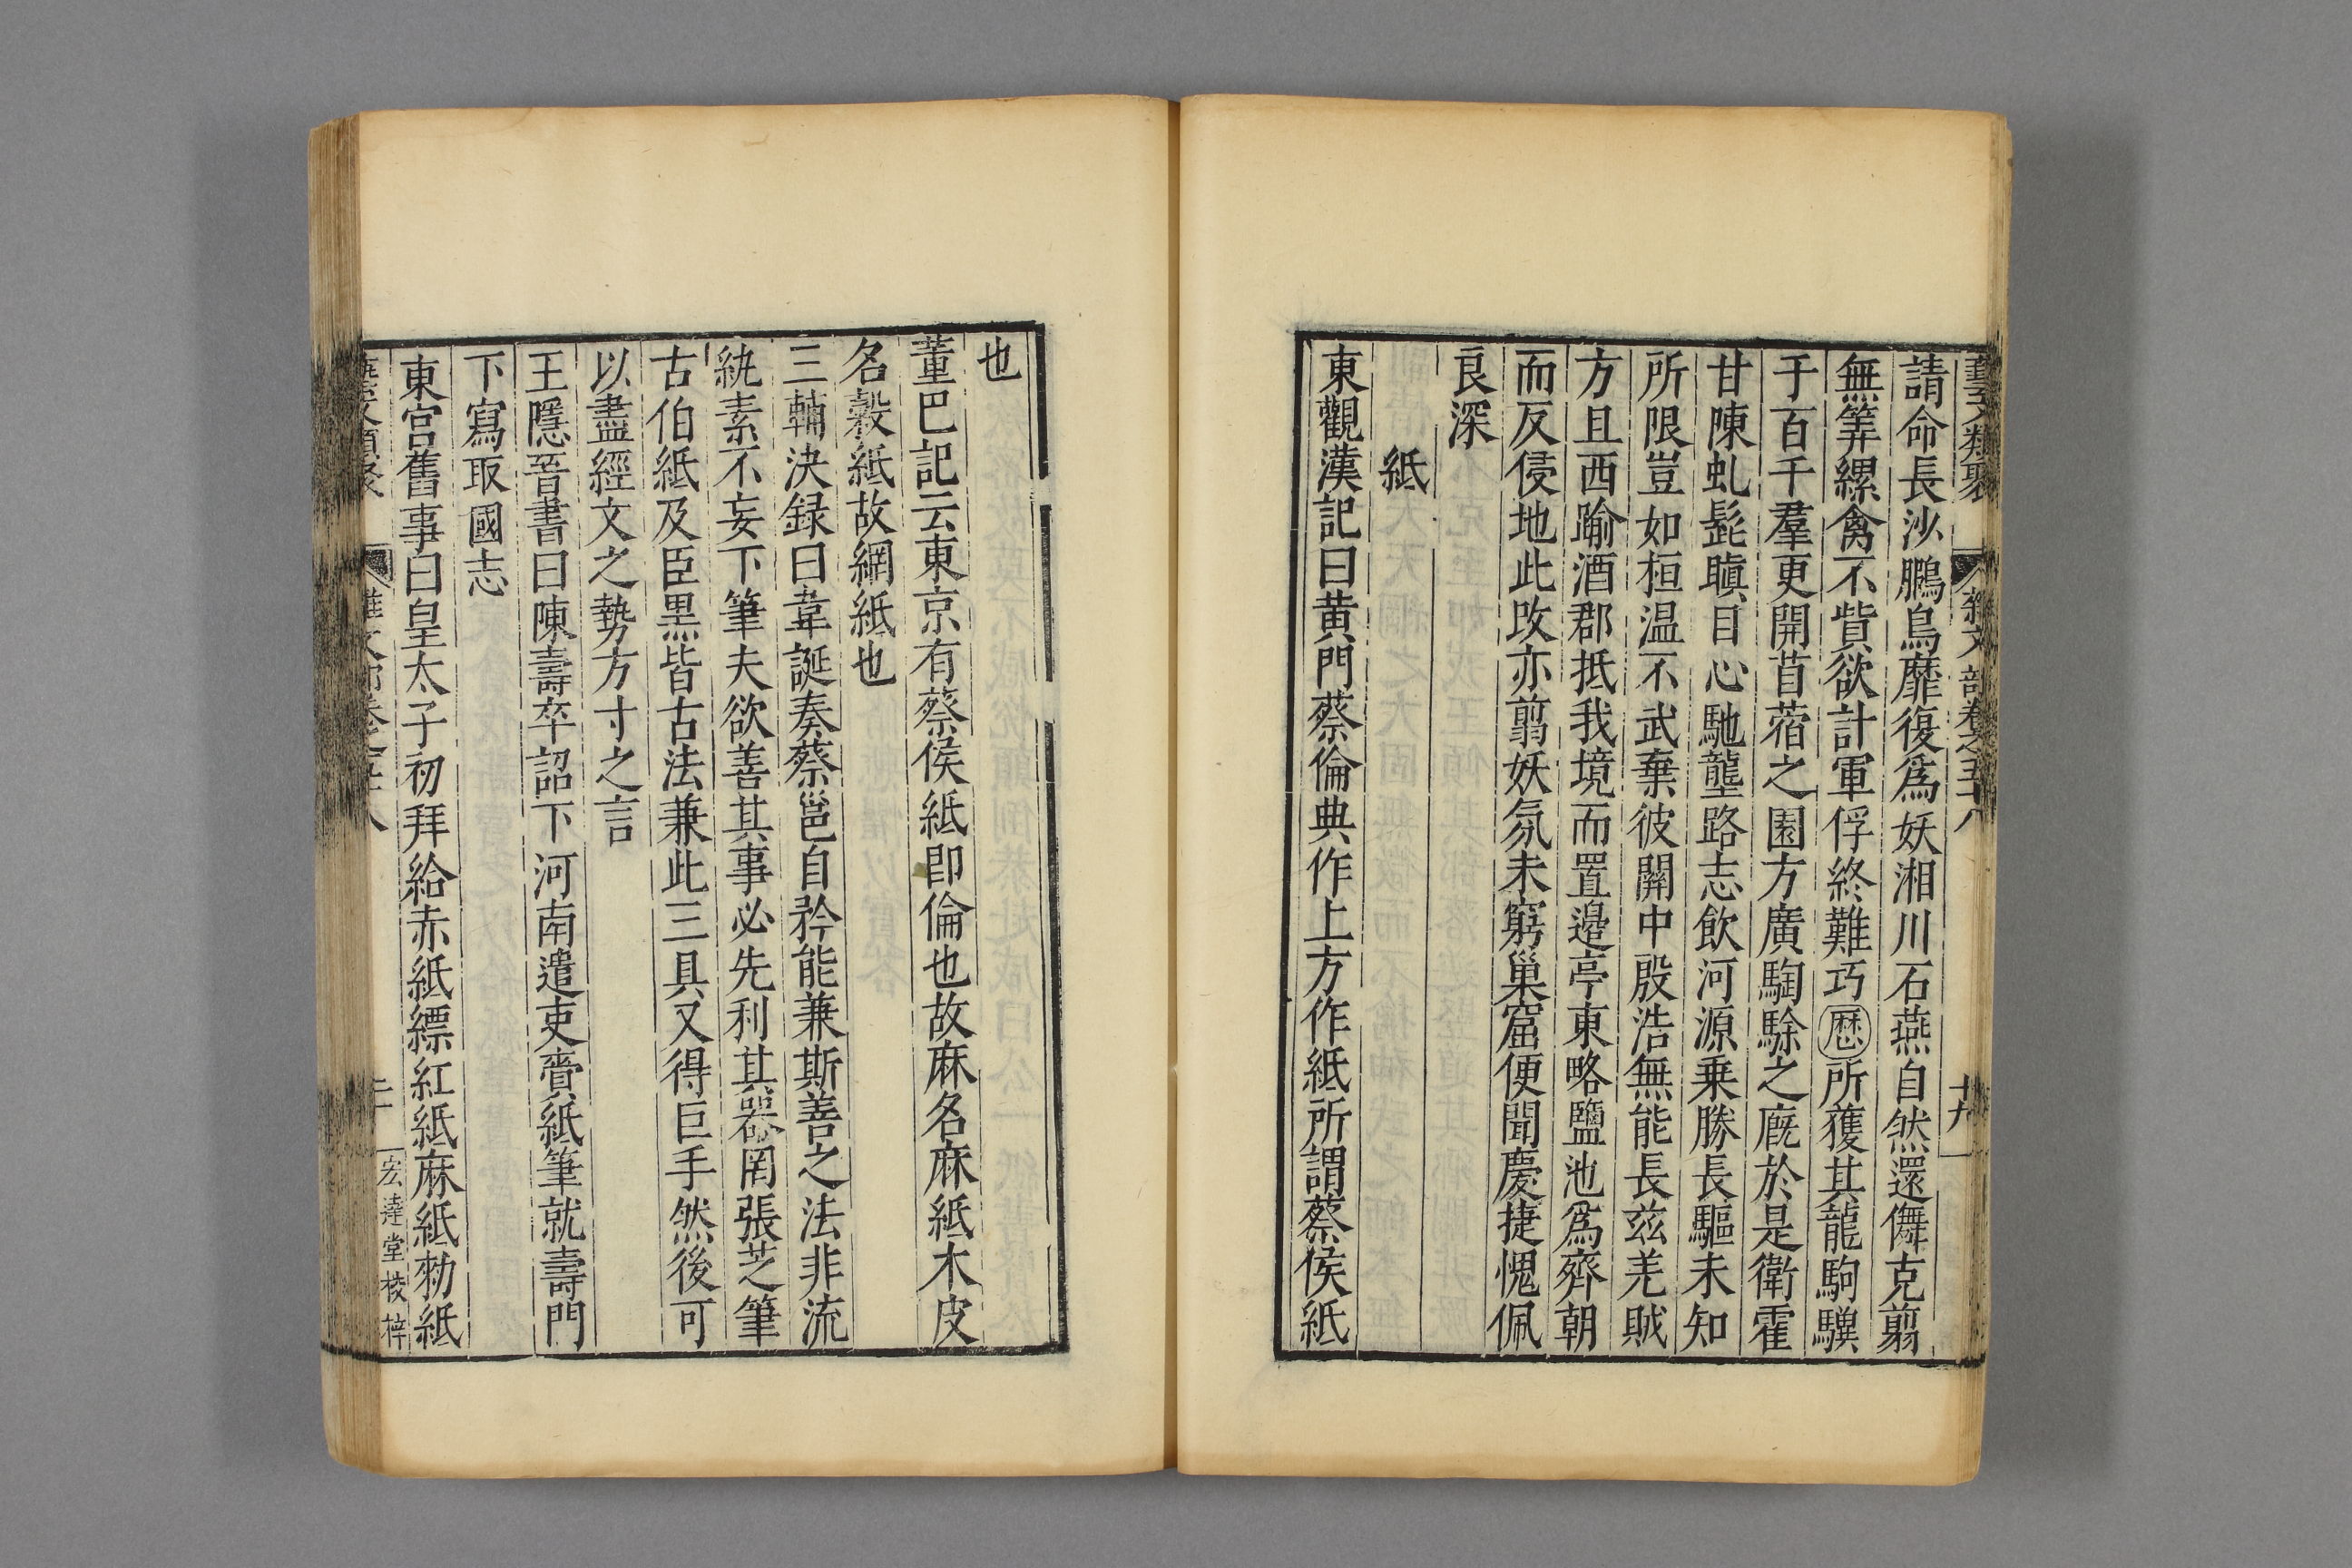 藝文類聚 雜文部卷之五十八 十九
請命長沙鵩鳥靡復爲妖湘川石燕自然還儛克翦
無筭縲禽不貲欲計軍俘終難巧曆所獲其龍駒驥
于百千羣更開苜蓿之園方廣騊駼之廐於是衛霍
甘陳虬髭瞋目心馳壟路志飲河源乗勝長驅未知
所限豈如桓温不武棄彼關中殷浩無能長兹羌賊
方且西踰酒郡抵我境而置邉亭東略鹽池爲齊朝
而反侵地此改亦翦妖氛未窮巢窟便聞慶捷愧佩
良深
紙
東觀漢記曰黄門蔡倫典作上方作紙所謂蔡侯紙
也
董巴記云東京有蔡侯紙即倫也故麻名麻紙木皮
名榖紙故網紙也
三輔決録曰韋誕奏蔡邕自矜能兼斯善之法非流
紈素不妄下筆夫欲善其事必先利其器罔張芝筆
古伯紙及臣黒皆古法兼此三具又得巨手然後可
以盡經文之勢方寸之言
王隱晉書曰陳壽卒詔下河南遣吏賷紙筆就壽門
下寫取國志
東宮舊事曰皇太子初拜給赤紙縹紅紙麻紙勑紙
藝文類聚 雜文部卷之五十八 二十 宏達堂棱梓